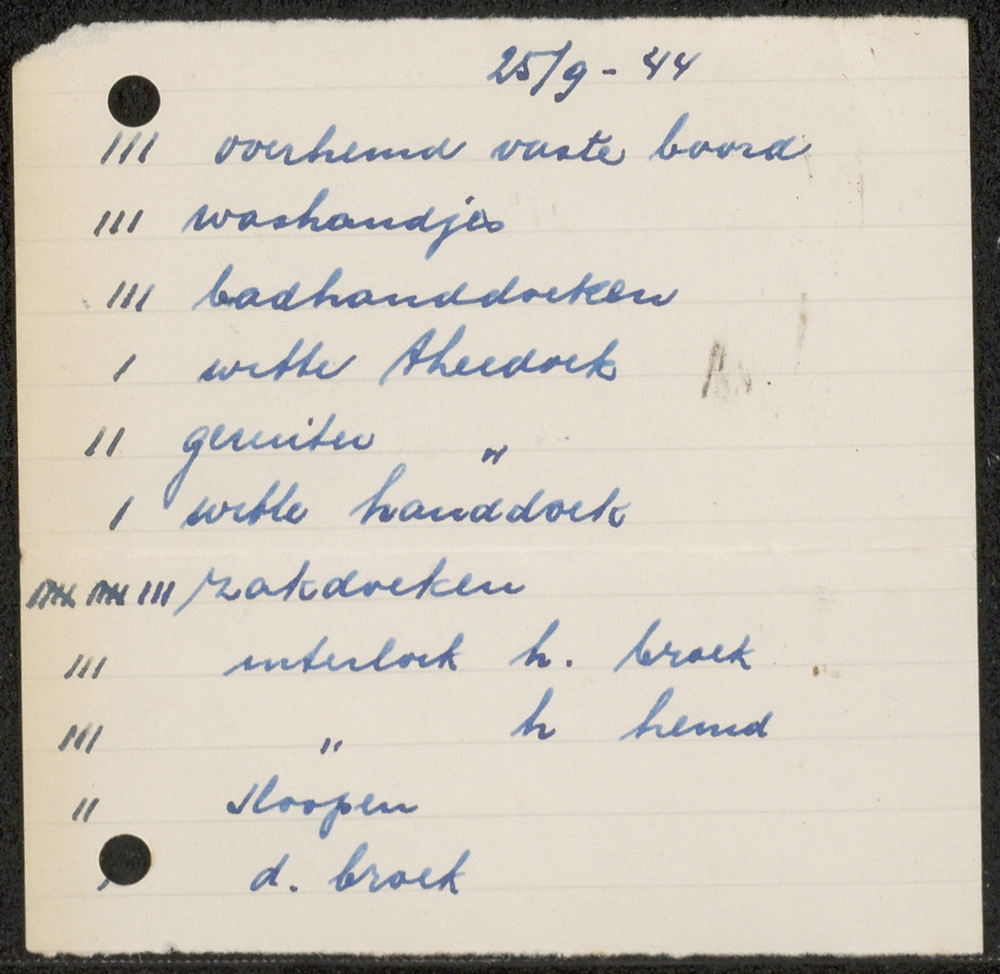 25/9 - 44
III overhemd vaste boord
III washandjes
III badhanddoeken
I witte theedoek
II geruite "
I witte handdoek
IIII IIII III zakdoeken
III interlock h. broek
III " h hemd
II sloopen
d. broek